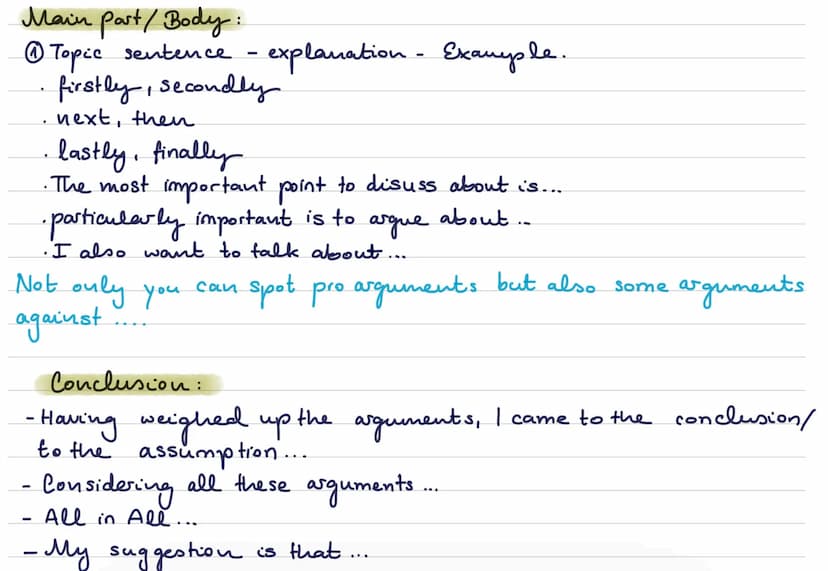 Main part/Body:
① Topic sentence - explanation - Example.
· firstly, secondly
· next, then
· lastly, finally
· The most important point to disuss about is...
· particularly important is to argue about ...
· I also want to talk about...
Not only you can spot pro arguments but also some arguments
against ....
Conclusion:
- Having weighed up the arguments, I came to the conclusion/
to the assumption...
- Considering all these arguments ...
- All in All...
- My suggestion is that ...